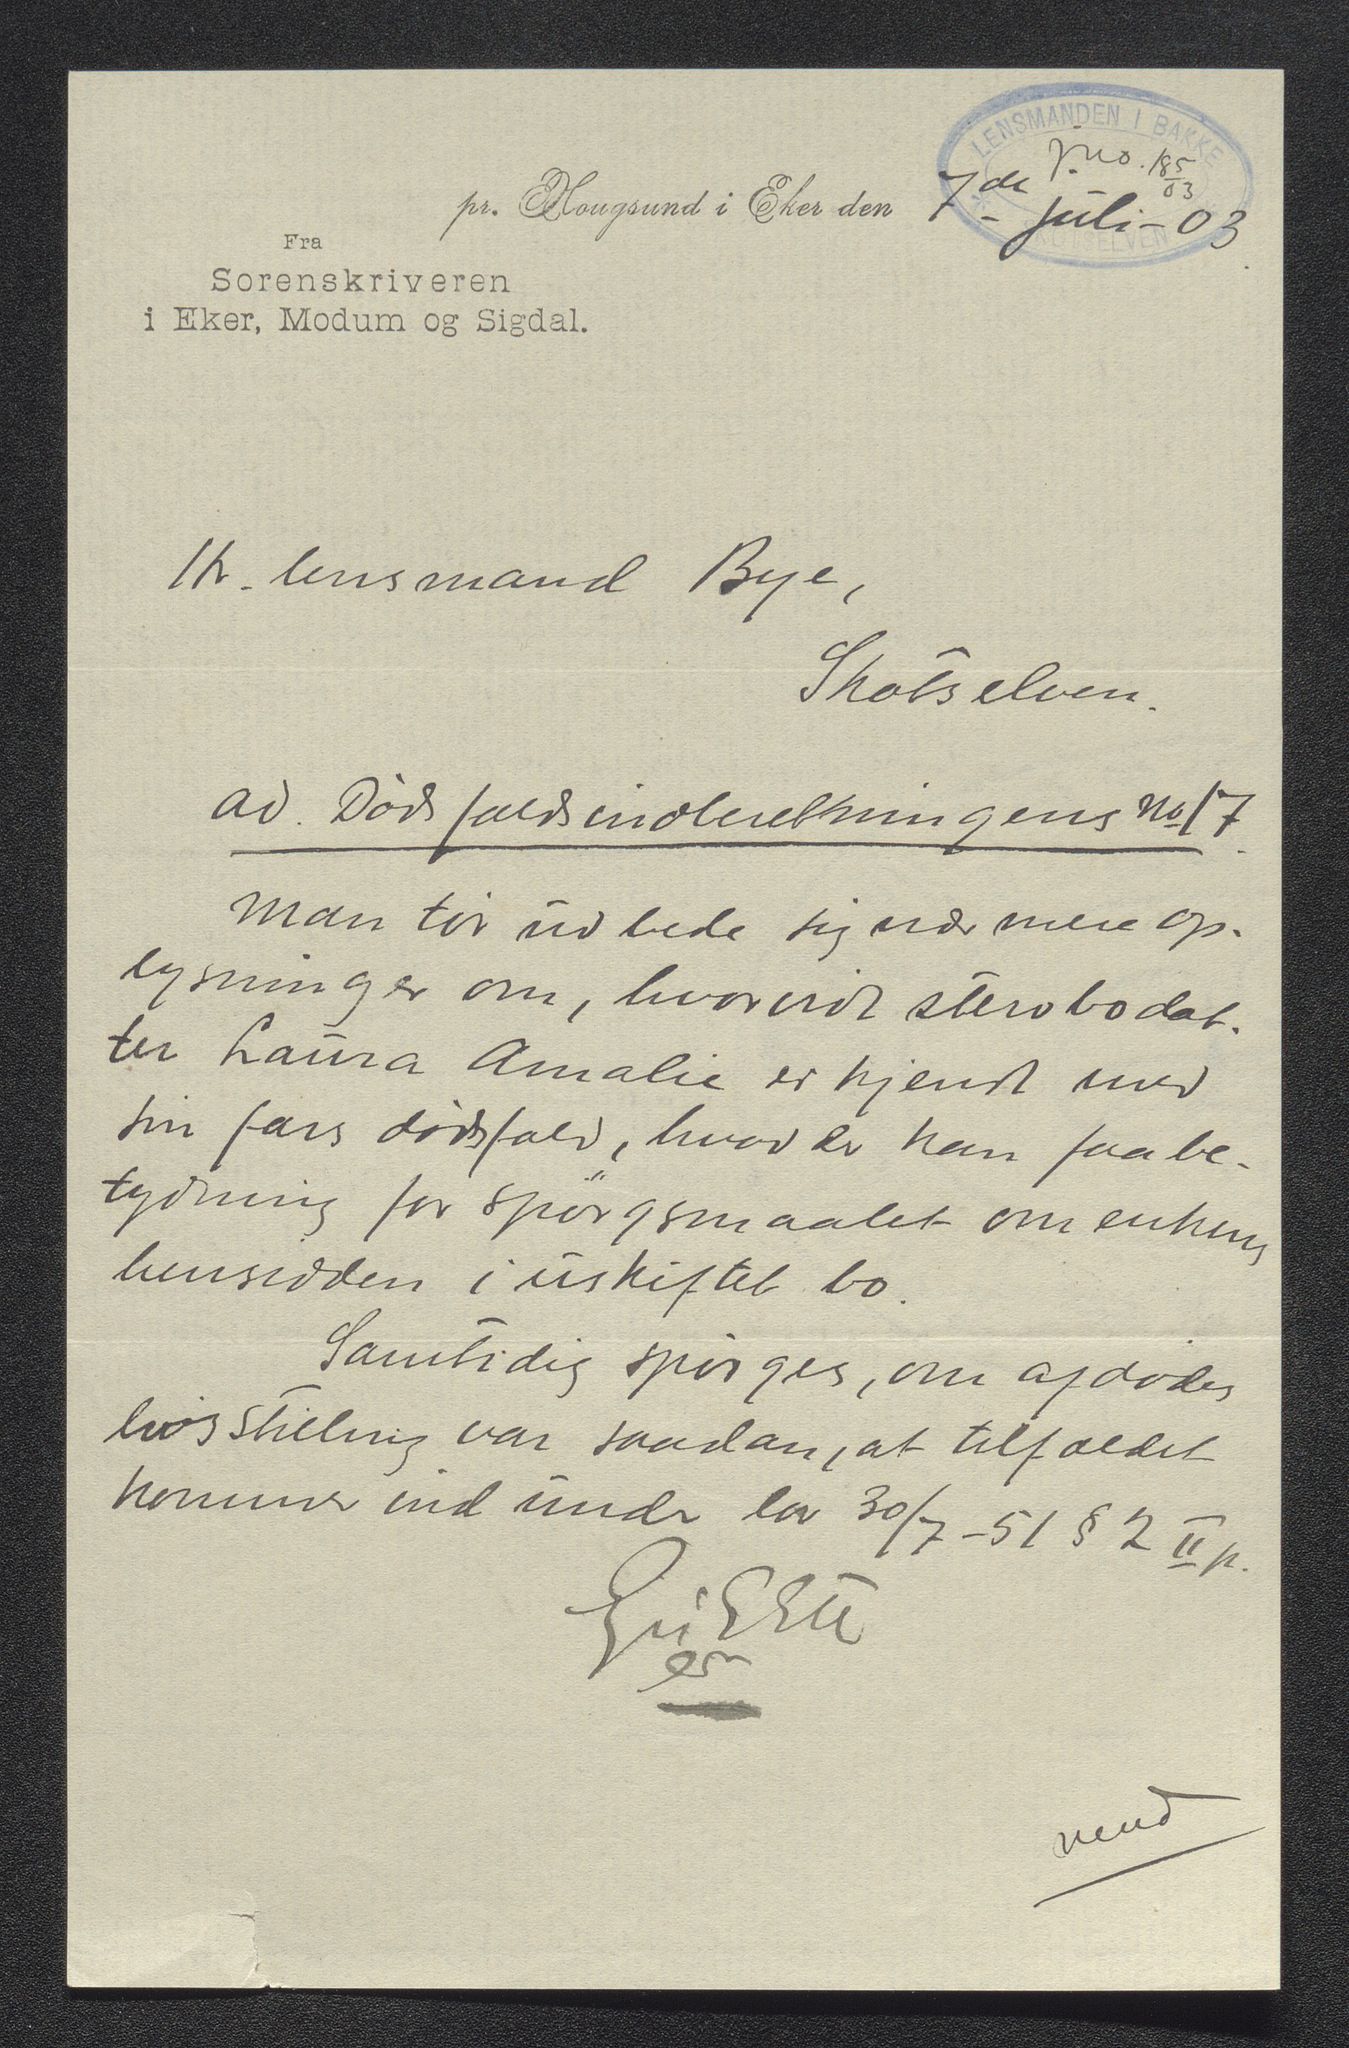 LENSMANDEN I BAKKE
j.no. 185/03
pr. Hougsund i Eker den 7de juli - 03.
SKOTSELVEN
Fra
Sorenskriveren
i Eker, Modum og Sigdal.
Hr. lensmand Bye,
Skotselven.
ad. Dødsfaldsindberetningens No 17.
Man tør udbede sig nærmere op-
lysninger om, hvorvidt stervbodat-
ter Laura Amalie er kjendt med
sin fars dødsfald, hvad der kan faa be-
tydning for spörgsmaalet om enkens
hensidden i uskiftet bo.
Samtidig spørges, om afdødes
livsstilling var saadan, at tilfældet
kommer ind under lov 30/7 - 51 § 2 II p.
vend